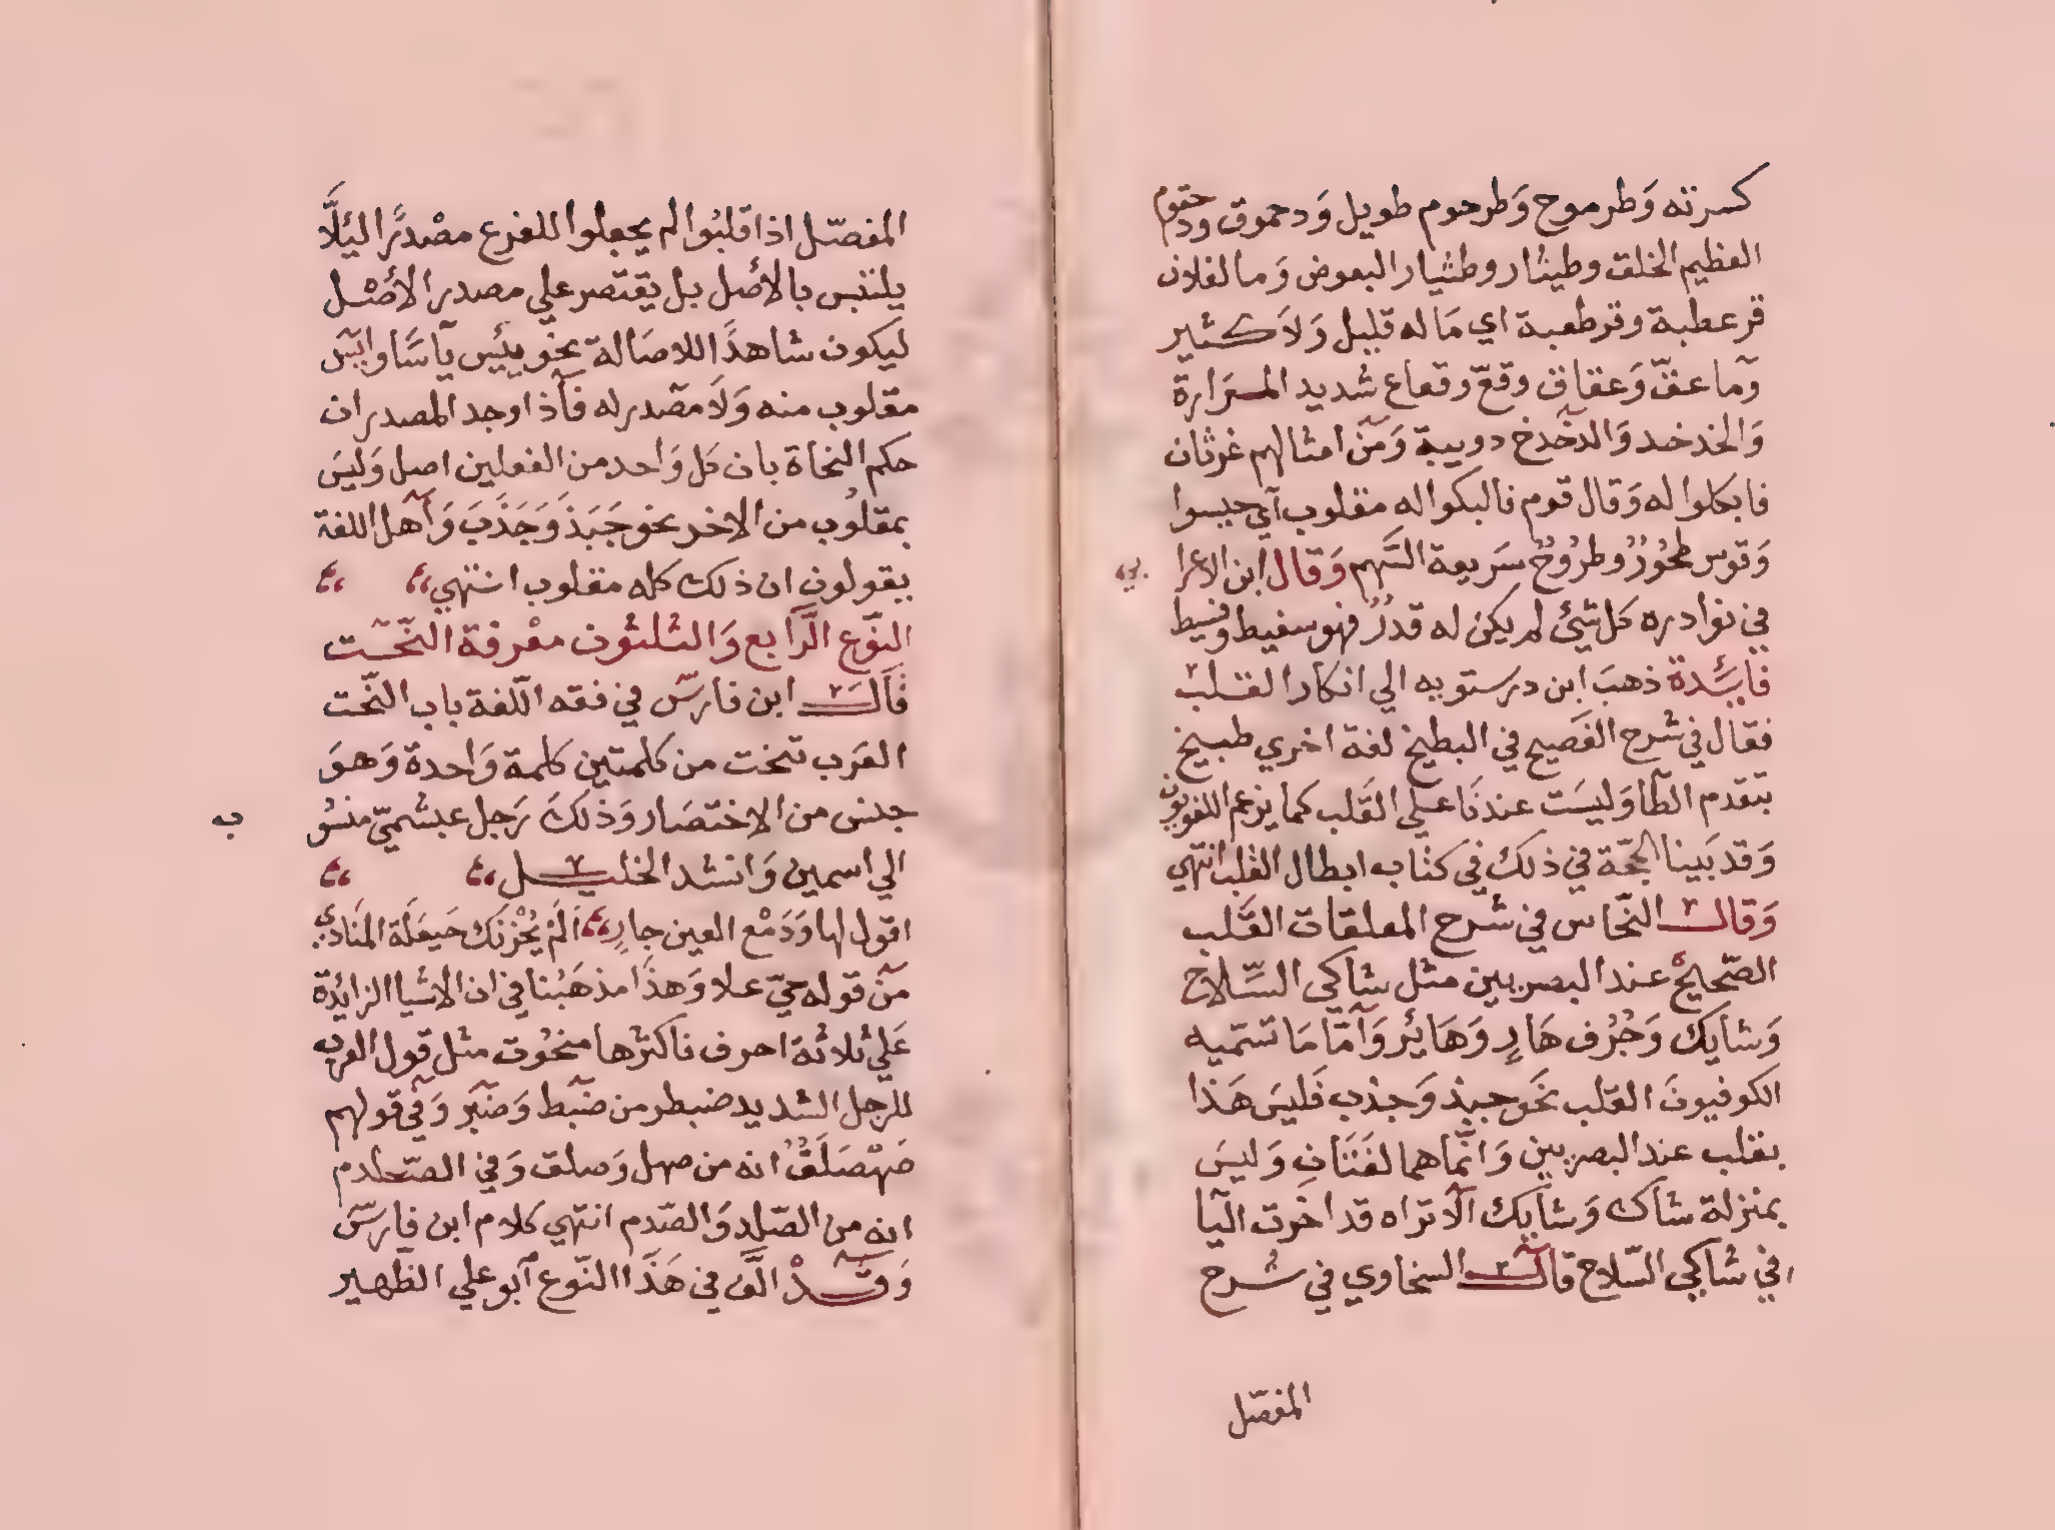 كسرته وَطرموح وَطرحوم طويل وَدحموق ودحقوم
العظيم الخلق وطيثار وطثيار البعوض وَما لفلان
قرعطبة وقرطعبة اي مَا له قليل وَلاَ كثير
وَما عقّ وَعقاق وقعّ وقعاع شديد المرَارة
وَالخدخد وَالدخدخ دويبة وَمن امثالهم غرثان
فابكلوا له وَقال قوم فالبكوا له مقلوب اي حيسوا
وَقوس طحُورٌ وطرُوحٌ سَريعة السَّهم وَقال ابن الاعرا بي
في نوادره كل شئ لم يكن له قدرٌ فهو سفيط وفسيط
فايَدة ذهبَ ابن درستويه الي انكار القلب
فقال في شرح الفَصيح في البطيخ لغة اخري طبيخ
بتقدم الطا وَليسَت عندنَا علي القَلب كما يزعم اللغويون
وَقد بَينا الحجّة في ذلك في كتاب ابطال القلب انتهي
وَقال النحّاس في شرح المعلقات القَلب
الصّحيحُ عند البصريين مثل شاكي السِّلاح
وَشايك وَجُرُف هَارٍ وَهَائر وَأمّا مَا تسَمّيه
الكوفيونَ القلب نحَو جبذ وَجذب فَليسَ هَذا
بقلب عند البصريين وَانّما هما لغَتَانِ وَليسَ
بمنزلة شاك وَشايك ألا تراه قد اخرت اليَا
في شاكي السّلاح قال السخاوي في شرح
المفصّل
المفصّل اذا قلبُوا لم يجعلوا للفرع مصْدرًا ليئلَّا
يلتبس بالأصل بل يقتصر علي مصدر الأصْل
ليكون شاهدًا للاصَالة نحو يئِس يأسًا وايس
مقلوب منه وَلَا مصدر له فاذا وجد المصدران
حكم النحاة بان كل وَاحد من الفعلين اصل وَليسَ
بمقلُوب من الاخر نحو جَبَذَ وَجَذَبَ وَأهل اللغة
يقولون ان ذلك كله مقلوب انتهي
النّوع الرَّابع وَالثلثون معْرفة النّحت
قَال ابن فارسّ في فقه اللّغة باب النّحت
العَرب تنحت من كلمتين كلمة وَاحدة وَهوَ
جنس من الاِختصَار وَذلكَ رَجل عبشميّ منسُو ب
الي اسمين وَانشد الخليل
اقول لها وَدَمْع العين جارٍ ألَمْ يُحْزنك حَيعَلَة المنَادي
من قوله حيّ علا وَهذَا مذهَبُنا في ان الاشيا الزايدة
عَلي ثلاثة احرف فاكثرها منحُوت مثل قول العرب
للرجل الشديد ضبطر من ضبط وَضبر وَفي قولهم
صَهْصَلَقٌ انه من صهل وَصلق وَفي الصّلدم
انه من الصّلد وَالصّدم انتهي كلام ابن فارسّ
وَقدْ الَّف في هَذَا النّوع أبو علي الظهير